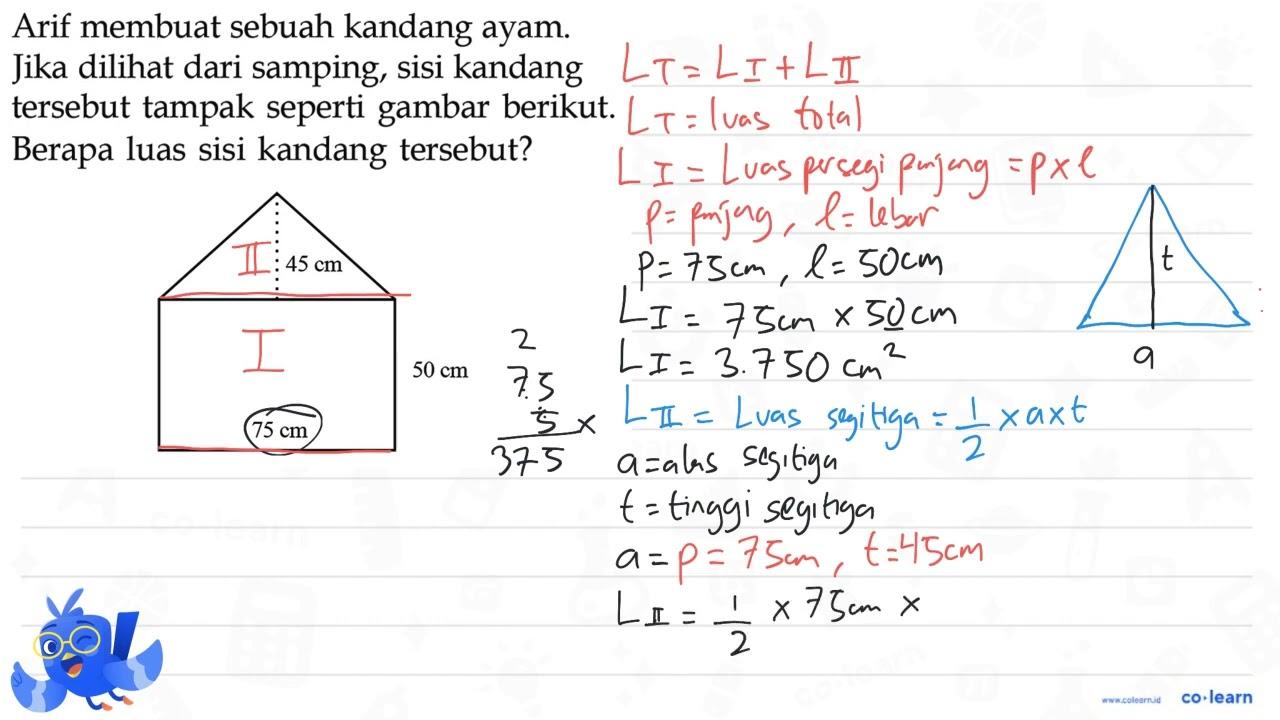 Arif membuat sebuah kandang ayam.
Jika dilihat dari samping, sisi kandang
tersebut tampak seperti gambar berikut.
Berapa luas sisi kandang tersebut?
II
45 cm
I
50 cm
75 cm
2
75
5 ×
375
LT = LI + LII
LT = luas total
LI = Luas persegi panjang = p × l
p = panjang, l = lebar
p = 75 cm, l = 50 cm
LI = 75 cm × 50 cm
LI = 3.750 cm²
LII = Luas segitiga = 1/2 × a × t
a = alas segitiga
t = tinggi segitiga
a = p = 75 cm, t = 45 cm
LII = 1/2 × 75 cm ×
t
a
co·learn
www.colearn.id co·learn